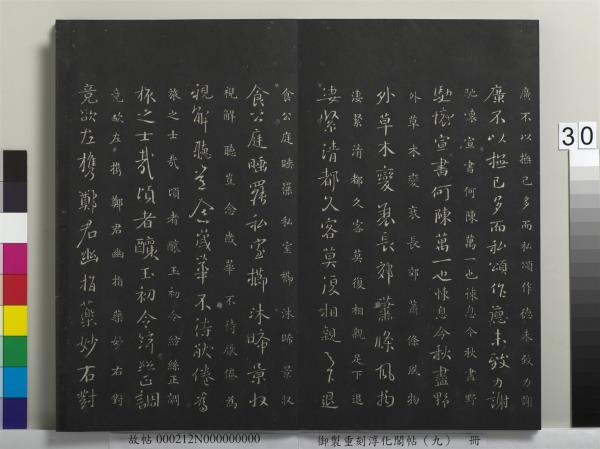 廉不以撫己多而私頌作德未致力謝
廉不以撫己多而私頌作德未致力謝
馳懷宣書何陳萬一也悚息今秋盡野
馳懷宣書何陳萬一也悚息今秋盡野
外草木變衰長郊蕭條風物
外草木變衰長郊蕭條風物
淒緊清都久客莫復相親足下退
淒緊清都久客莫復相親足下退
食公庭睡羅私室擲沐晞景收
食公庭睡羅私室擲沐晞景收
視解聽豈念歲華不待厭倦為
視解聽豈念歲華不待厭倦為
旅之士哉頃者釀玉初令結絲正調
旅之士哉頃者釀玉初令結絲正調
竟欲左攜鄭君幽指藥妙右對
竟欲左攜鄭君幽指藥妙右對
30
故帖 000212N000000000
御製重刻淳化閣帖(九) 冊